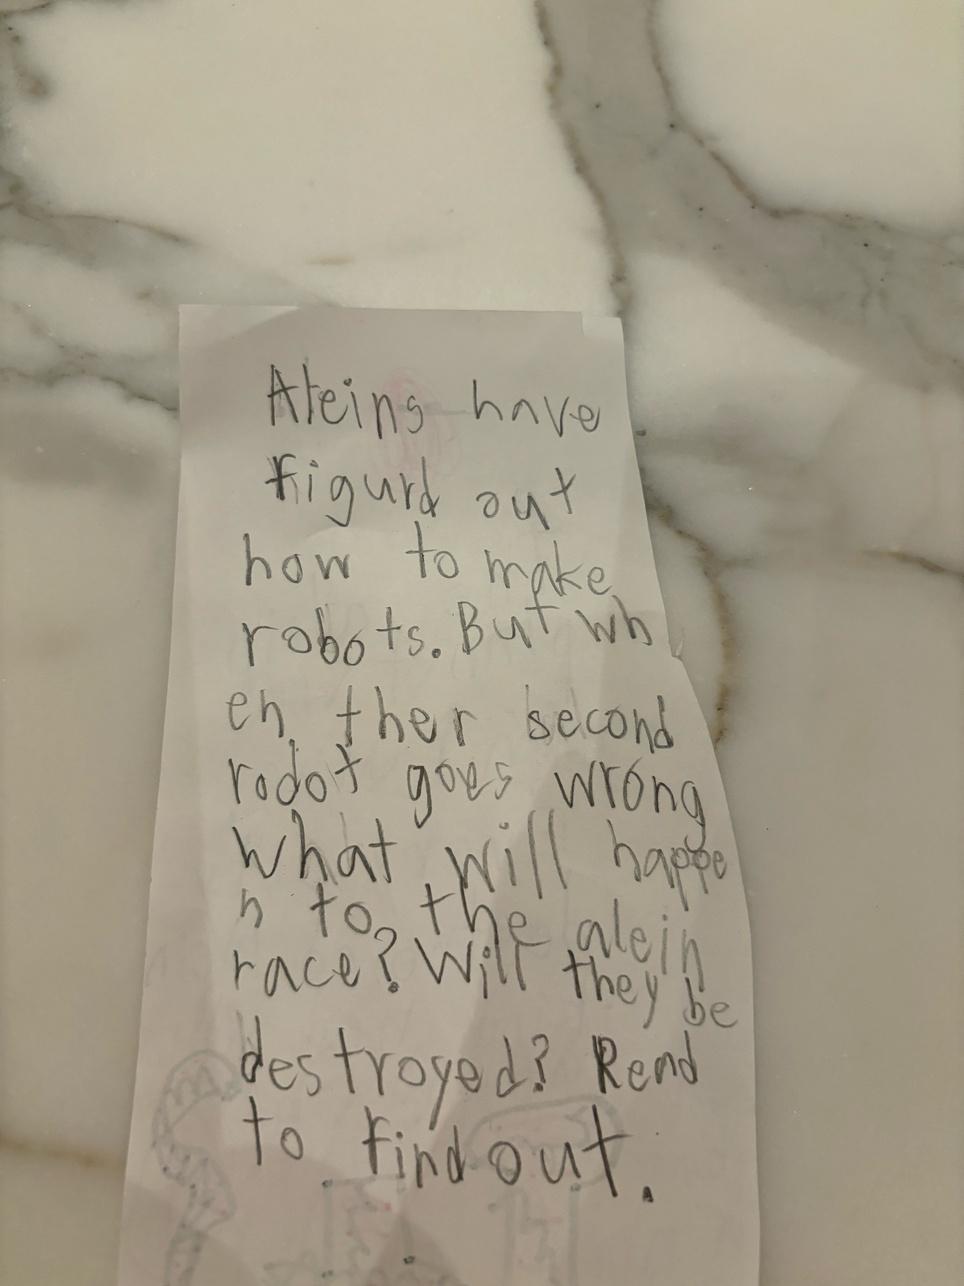 Aleins have
figurd out
how to make
robots. But wh
en ther second
rodot goes wrong
what will happe
n to the alein
race? Will they be
destroyed? Read
to find out.